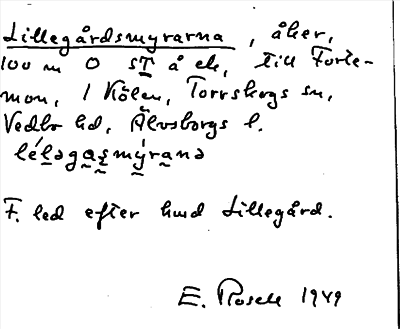 Lillegårdsmyrarna, åker,
100 m O ST å ek, till Forte-
mon, i Kölen, Torrskogs sn,
Vedbo hd, Älvsborgs l.
F. led efter hmd Lillegård.
E. Rosell 1949